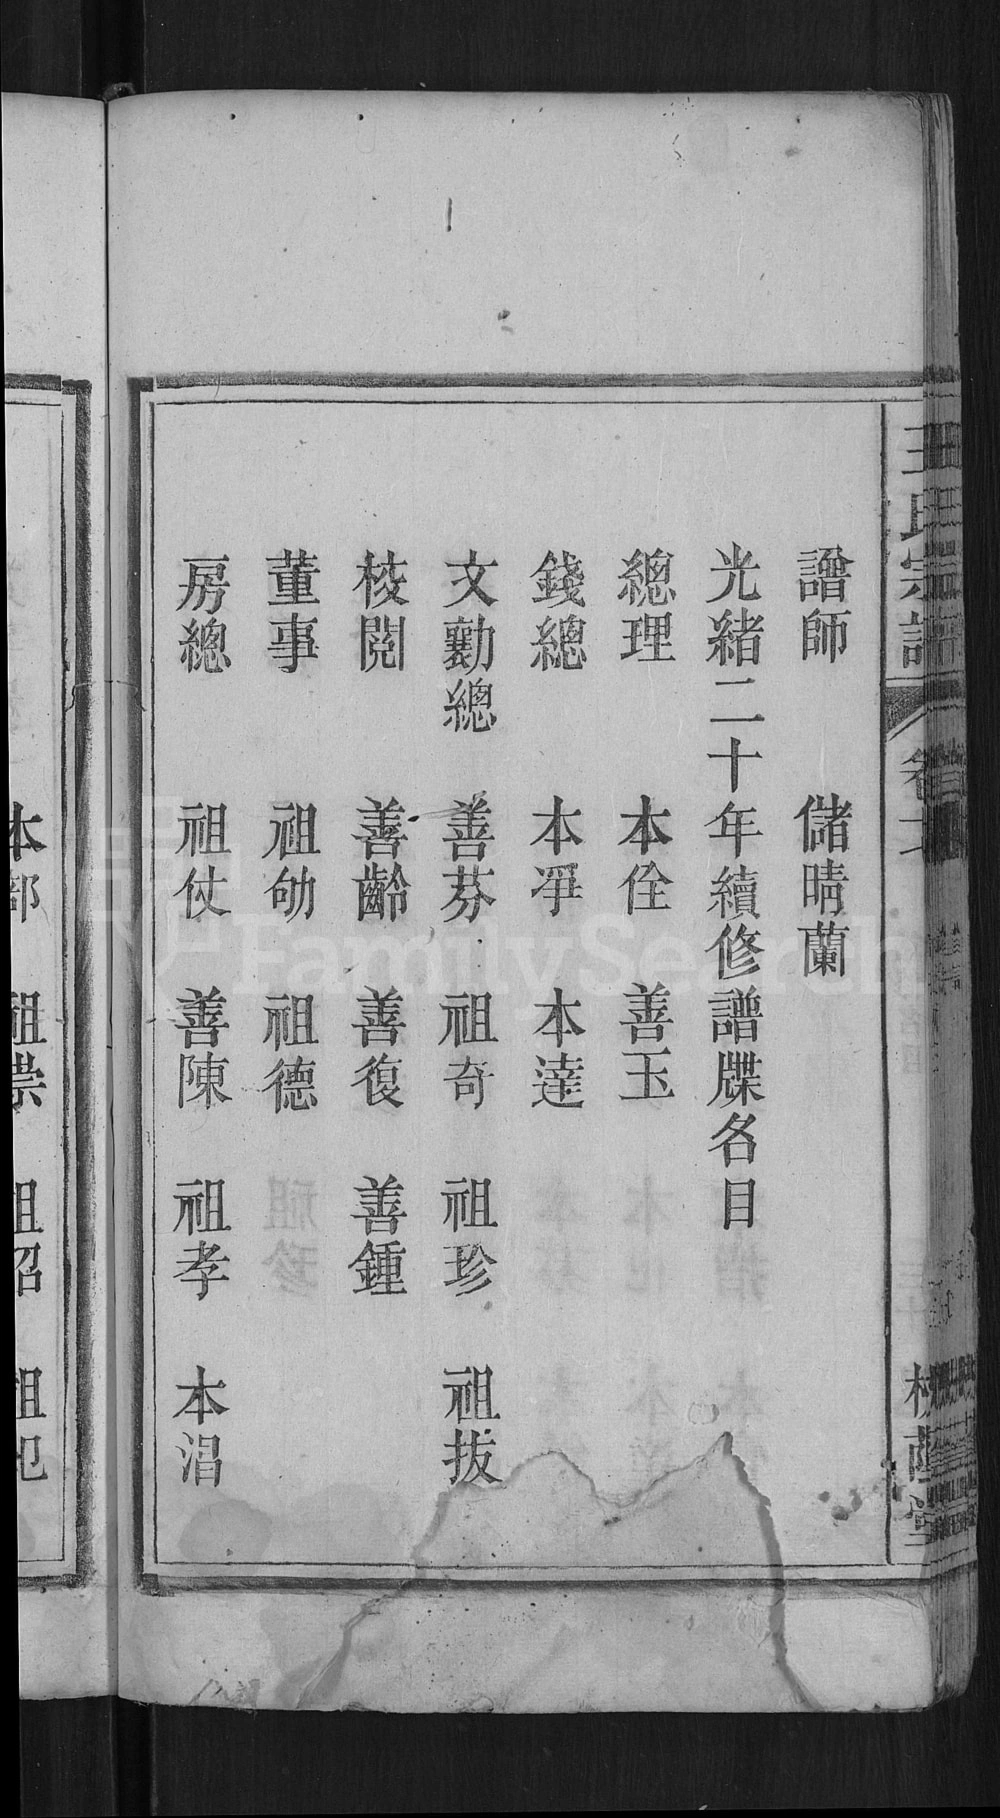 王氏宗譜
譜師 儲晴蘭
光緒二十年續修譜牒名目
總理 本佺 善玉
錢總 本凈 本達
文勷總 善芬 祖奇 祖珍 祖拔
校閱 善齡 善復 善鍾
董事 祖劬 祖德
房總 祖仗 善陳 祖孝 本淐
祖紹
FamilySearch